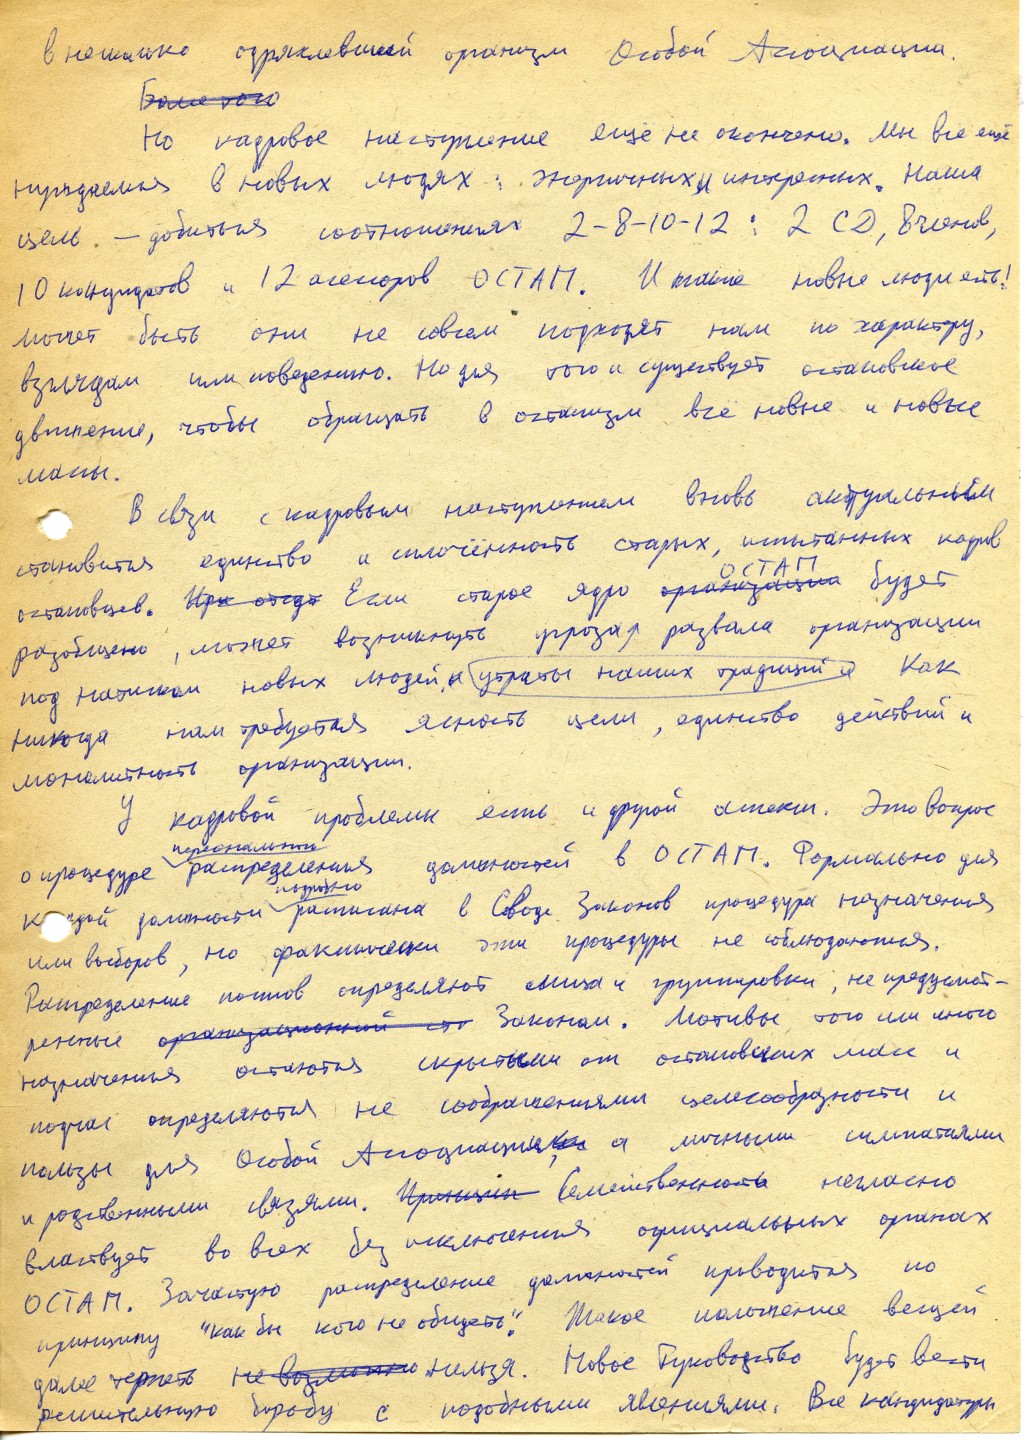 в несколько одряхлевший организм Особой Ассоциации.
Более того
Но кадровое наступление ещё не окончено. Мы всё ещё
нуждаемся в новых людях: энергичных и интересных. Наша
цель – добиться соотношения 2-8-10-12: 2 CD, 8 членов,
10 кандидатов и 12 асессоров ОСТАП. И такие новые люди есть!
Может быть они не совсем подходят нам по характеру,
взглядам или поведению. Но для того и существует остаповское
движение, чтобы обращать в остапизм всё новые и новые
массы.
В связи с кадровым наступлением вновь актуальным
становится единство и сплочённость старых, испытанных кадров
остаповцев. Если старое ядро организации ОСТАП будет
разобщено, может возникнуть угроза развала организации
под натиском новых людей и утраты наших традиций. Как
никогда нам требуется ясность цели, единство действий и
монолитность организации.
У кадровой проблемы есть и другой аспект. Это вопрос
о процедуре персонального распределения должностей в ОСТАП. Формально для
каждой должности подробно расписана в Своде Законов процедура назначения
или выборов, но фактически эти процедуры не соблюдаются.
Распределение постов определяют лица и группировки, не предусмот-
ренные организационной Законом. Мотивы того или иного
назначения остаются скрытыми от остаповских масс и
подчас определяются не соображениями целесообразности и
пользы для Особой Ассоциации, а личными симпатиями
и родственными связями. Принцип Семейственность негласно
властвует во всех без исключения официальных органах
ОСТАП. Зачастую распределение должностей проводится по
принципу "как бы кого не обидеть". Такое положение вещей
далее терпеть невозможно нельзя. Новое Руководство будет вести
решительную борьбу с подобными явлениями. Все кандидатуры